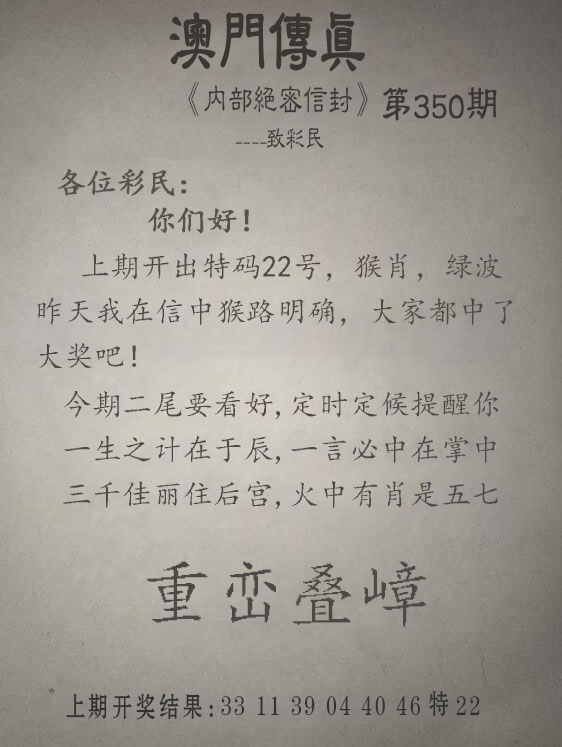 澳門傳眞
《内部絕密信封》第350期
----致彩民
各位彩民：
你们好！
上期开出特码22号，猴肖，绿波
昨天我在信中猴路明确，大家都中了
大奖吧！
今期二尾要看好,定时定候提醒你
一生之计在于辰,一言必中在掌中
三千佳丽住后宫,火中有肖是五七
重峦叠嶂
上期开奖结果:33 11 39 04 40 46 特 22